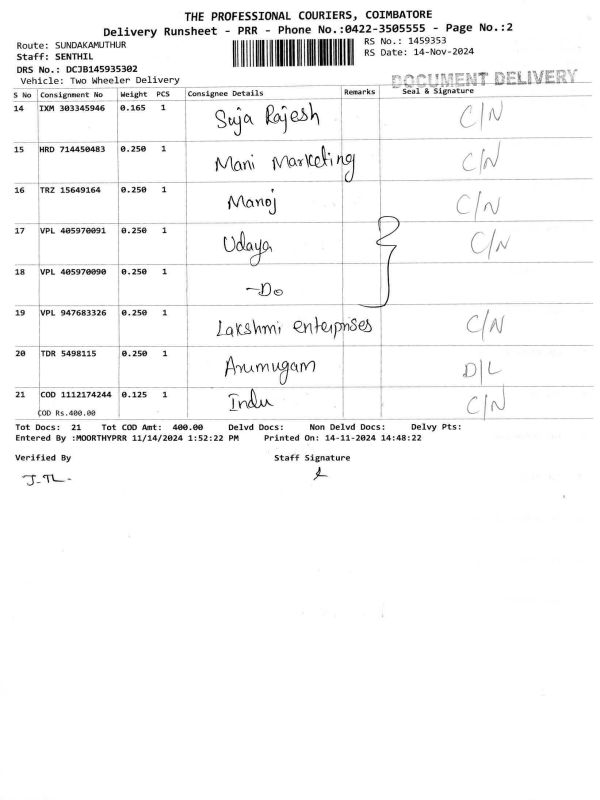 THE PROFESSIONAL COURIERS, COIMBATORE
Delivery Runsheet - PRR - Phone No.:0422-3505555 - Page No.:2
Route: SUNDAKAMUTHUR RS No.: 1459353
Staff: SENTHIL RS Date: 14-Nov-2024
DRS No.: DCJB145935302
Vehicle: Two Wheeler Delivery DOCUMENT DELIVERY
S No Consignment No Weight PCS Consignee Details Remarks Seal & Signature
14 IXM 303345946 0.165 1 Suja Rajesh C/N
15 HRD 714450483 0.250 1 Mani Marketing C/N
16 TRZ 15649164 0.250 1 Manoj C/N
17 VPL 405970091 0.250 1 Udaya C/N
18 VPL 405970090 0.250 1 -Do
19 VPL 947683326 0.250 1 Lakshmi enterprises C/N
20 TDR 5498115 0.250 1 Arumugam D/L
21 COD 1112174244 0.125 1 Indu C/N
COD Rs.400.00
Tot Docs: 21 Tot COD Amt: 400.00 Delvd Docs: Non Delvd Docs: Delvy Pts:
Entered By :MOORTHYPRR 11/14/2024 1:52:22 PM Printed On: 14-11-2024 14:48:22
Verified By Staff Signature